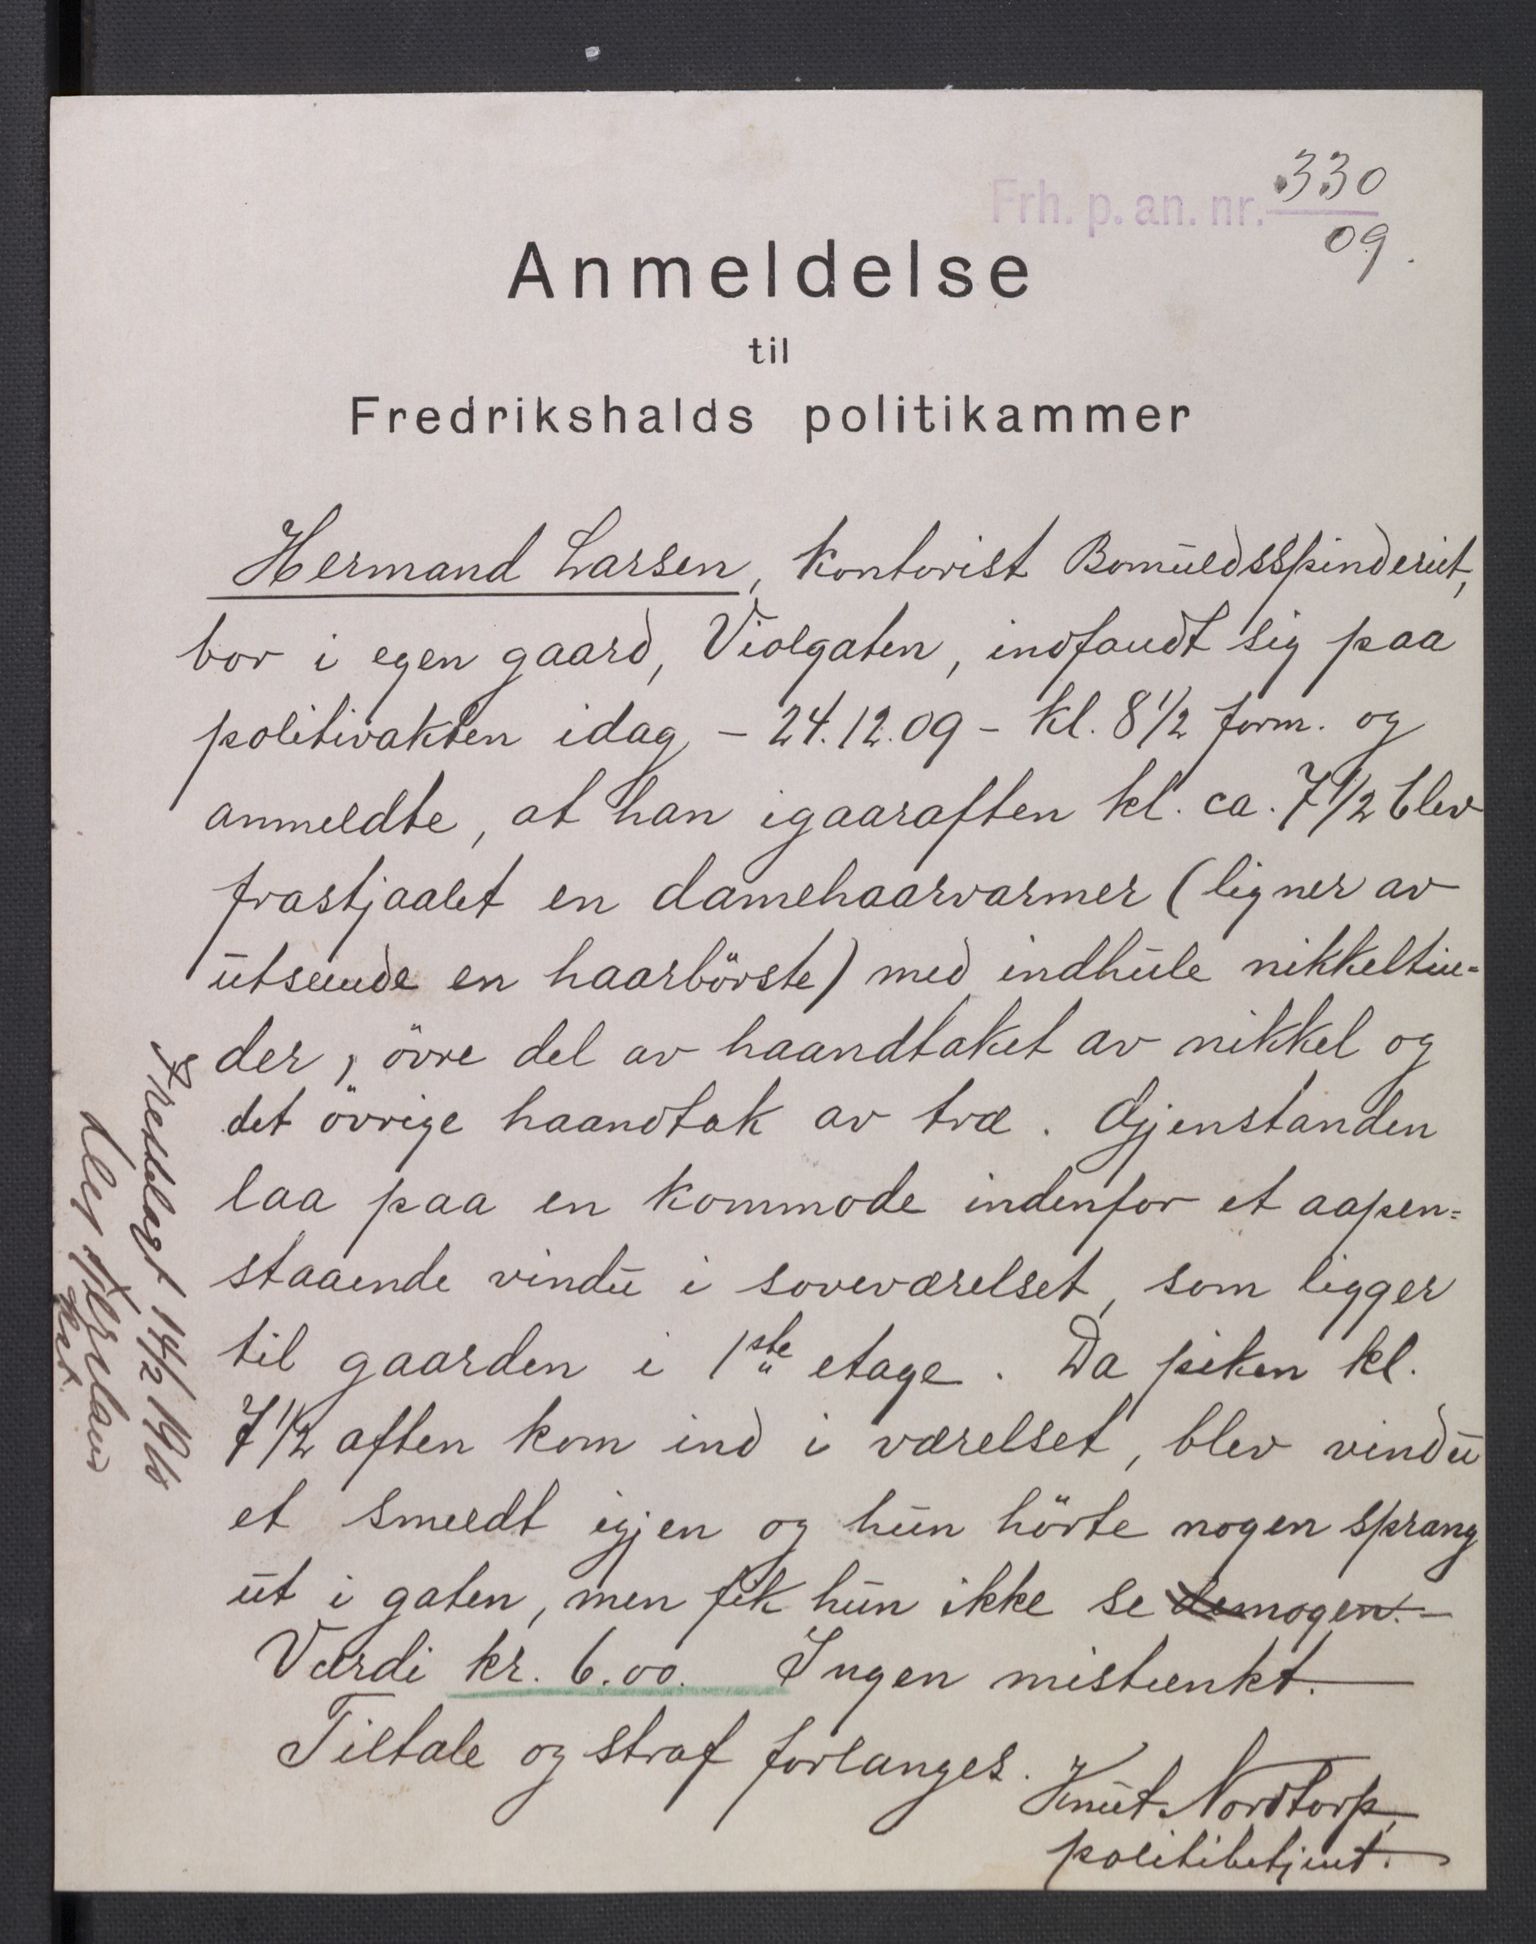 Frh. p. an. nr. 330
09.
Anmeldelse
til
Fredrikshalds politikammer
Hermand Larsen, kontorist Bomuldsspinderiet,
bor i egen gaard, Violgaten, indfandt sig paa
politivakten idag, - 24.12.09 - kl. 8 1/2 form. og
anmeldte, at han igaaraften kl. ca. 7 1/2 blev
frastjaalet en damehaarvarmer (ligner av
utseende en haarbörste) med indhule nikkeltin-
der, övre del av haandtaket av nikkel og
det övrige haandtak av træ. Gjenstanden
laa paa en kommode indenfor et aapen=
staaende vindu i soveværelset, som ligger
til gaarden i 1ste etage. Da piken kl.
7 1/2 aften kom ind i værelset, blev vindu
et smeldt igjen og hun hörte nogen sprang
ut i gaten, men fik hun ikke se nogen. -
Værdi kr. 6.00. Ingen mistænkt. -
Tiltale og straf forlanges.
Knut Nordtorp,
politibetjent.
14/2 1910